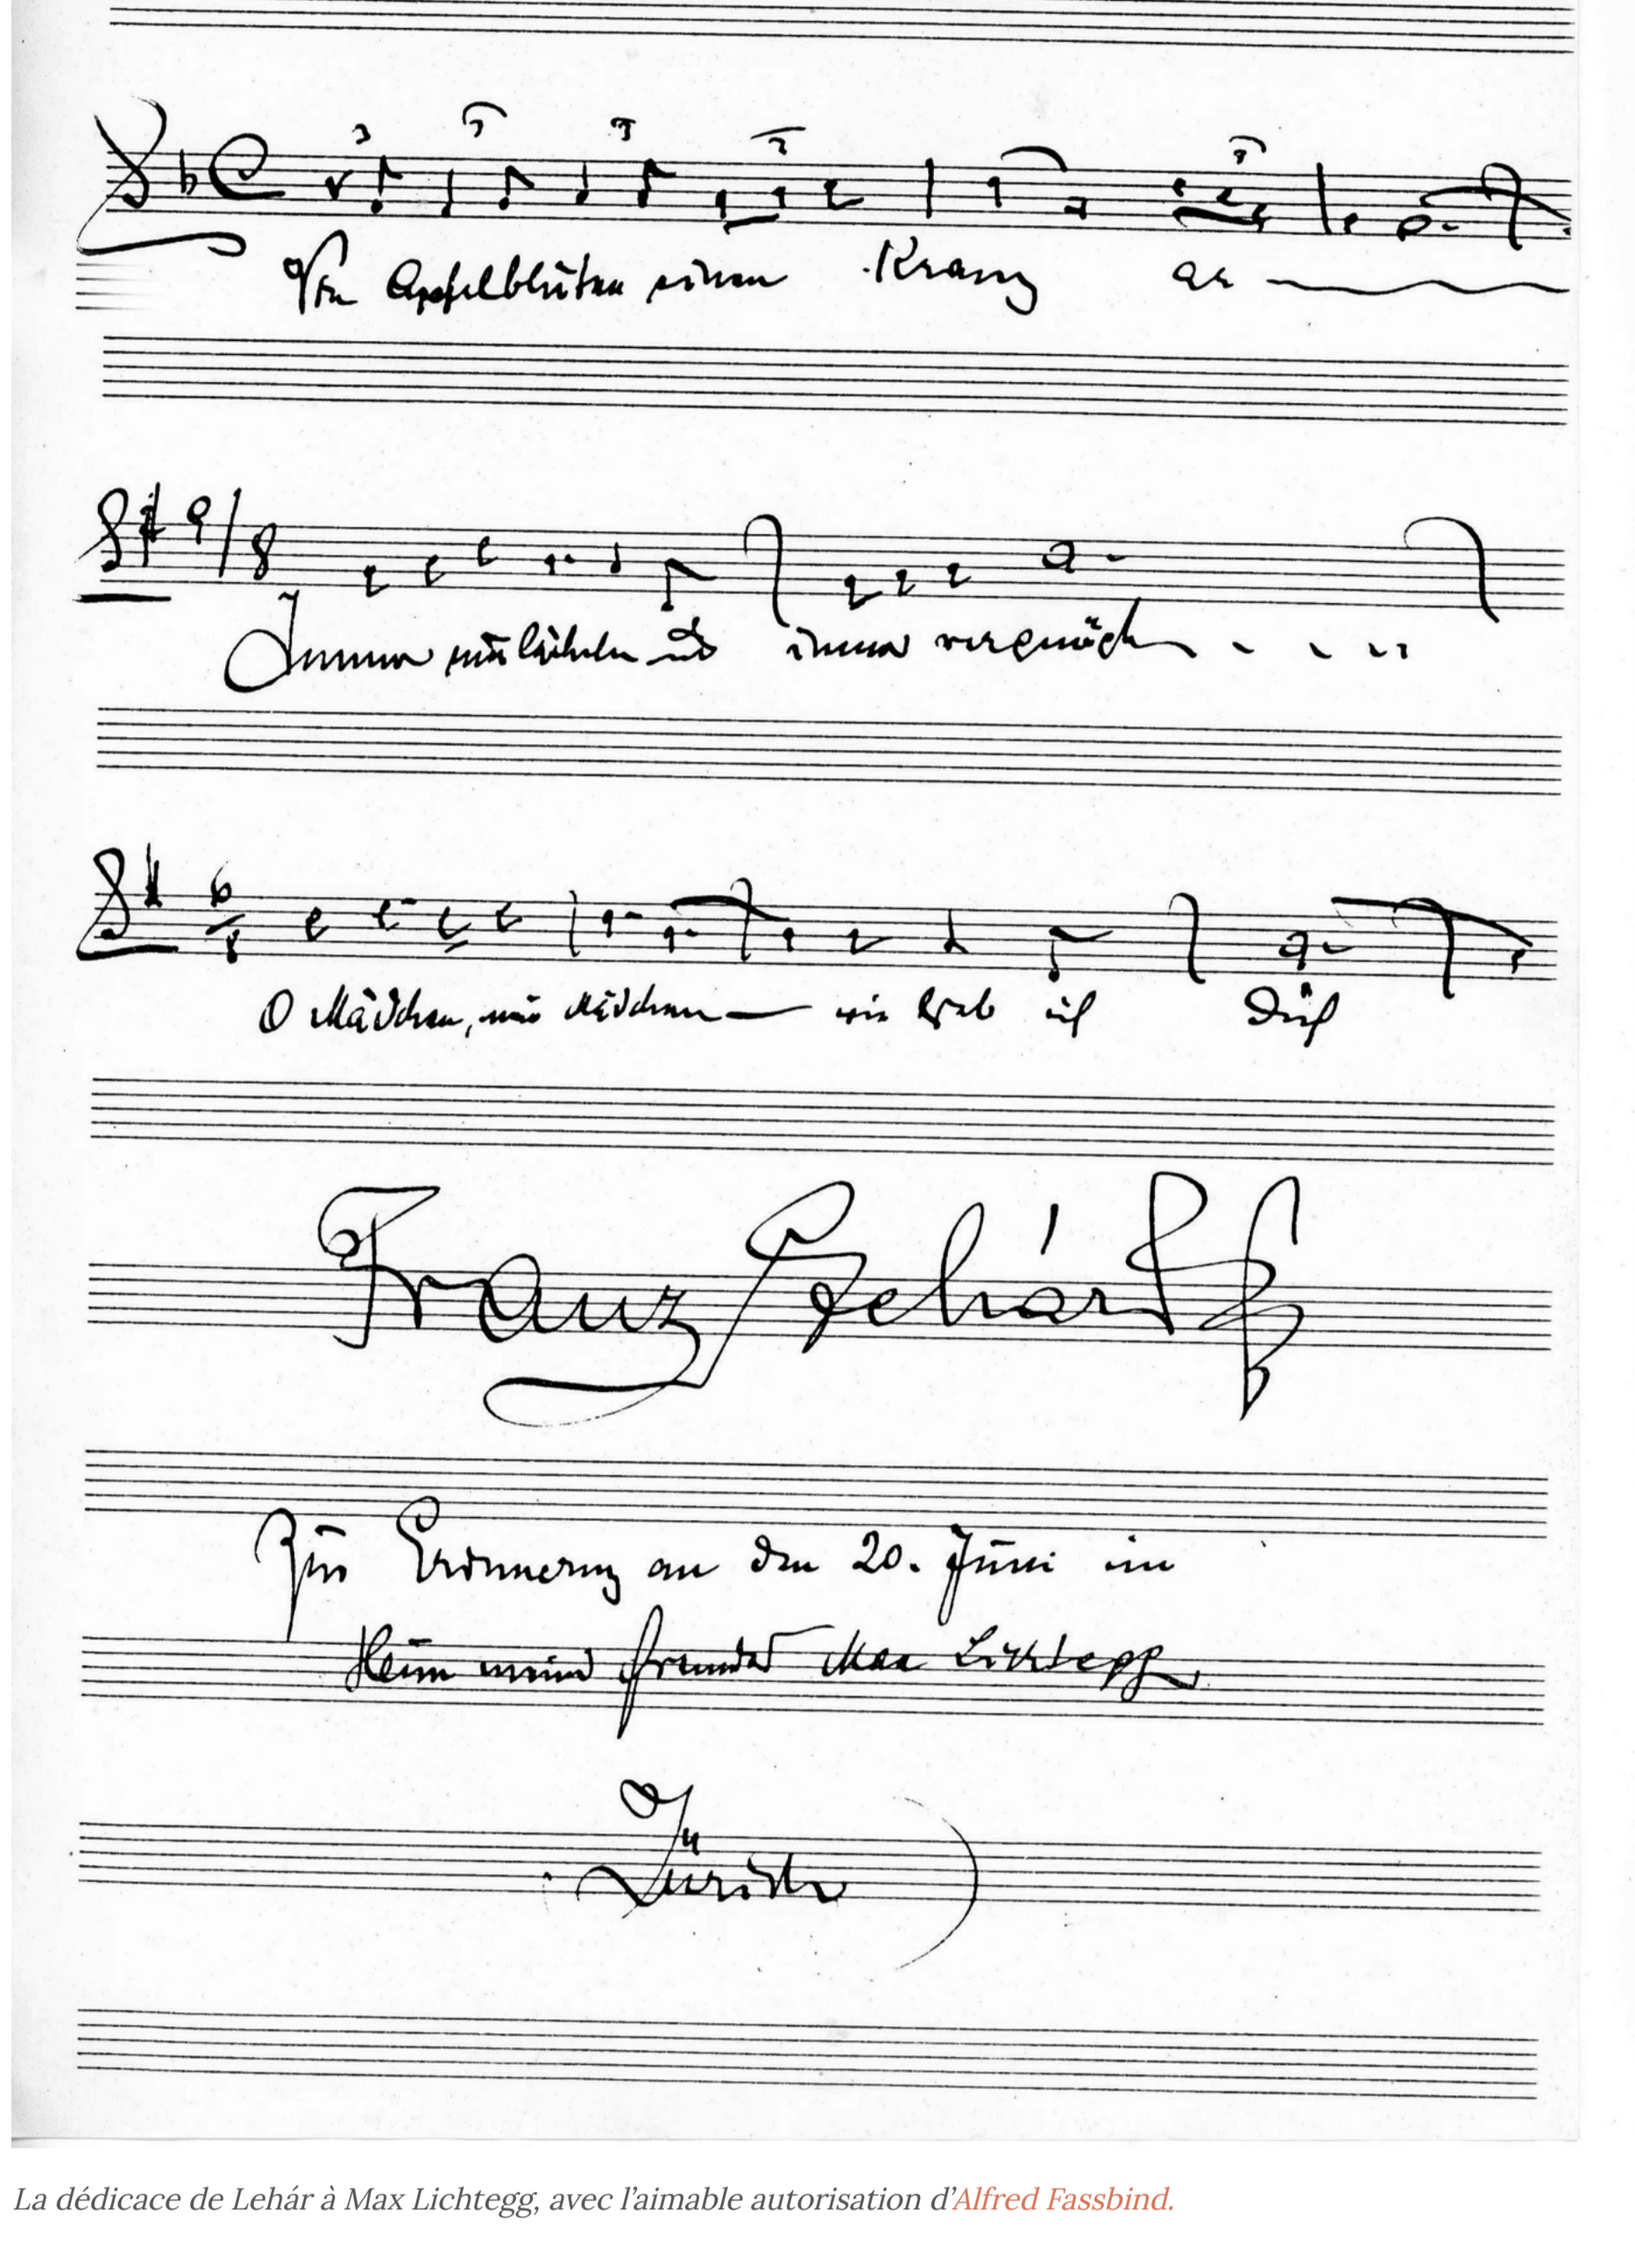 Von Apfelblüten einen Kranz ar
Immer nur lächeln und immer vergnügt
O Mädchen, mein Mädchen — wie lieb ich Dich
Franz Lehár
Zur Erinnerung an den 20. Juni im
Heim meines Freundes Max Lichtegg
In
Zürich
La dédicace de Lehár à Max Lichtegg, avec l’aimable autorisation d’Alfred Fassbind.